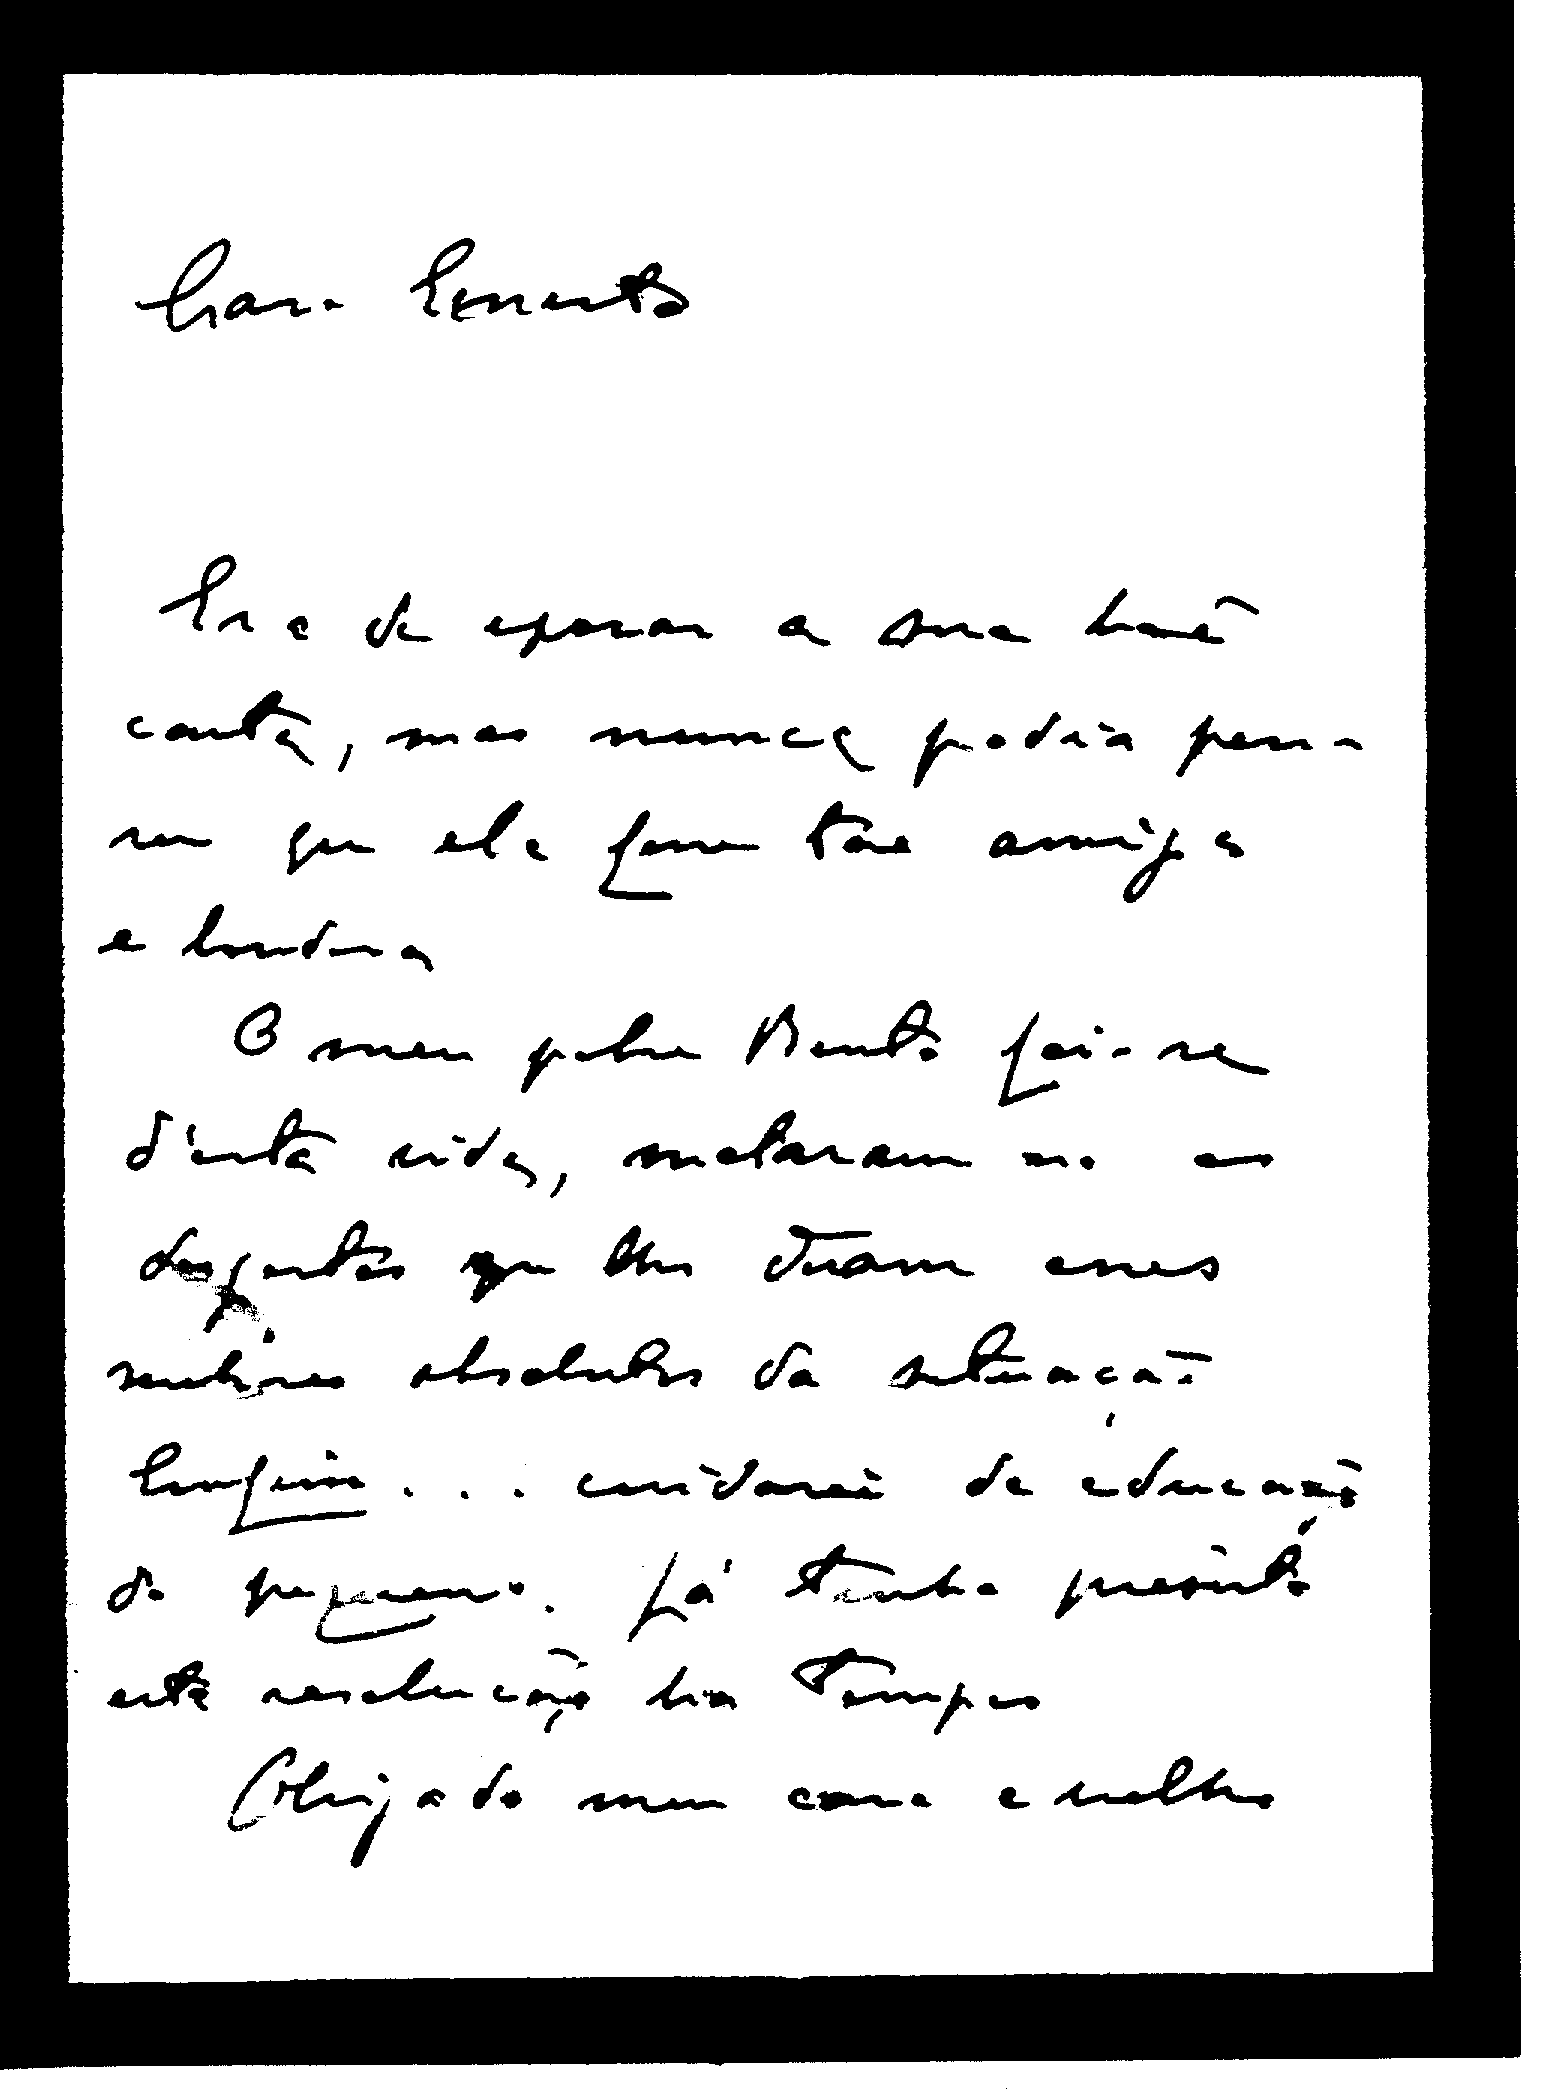 Caro Ernesto
Era de esperar a sua boa
carta, mas nunca podia pen-
sar que ela fosse tão amiga
e bondosa
O meu pobre Bento foi-se
d'esta vida, mataram-no os
desgostos que lhe deram esses
senhores absolutos da situação
Enfim... cuidarei da educação
do pequeno. Já tinha previsto
esta resolução ha tempos
Obrigado meu caro e velho